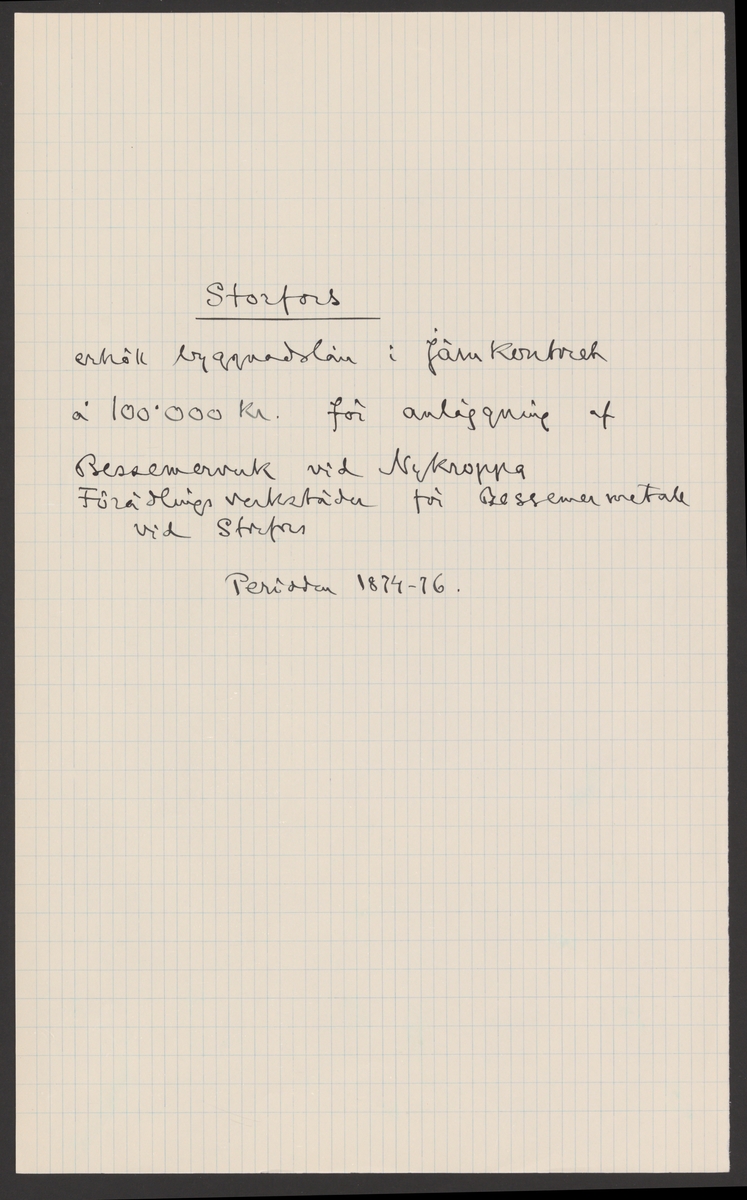 Storfors
erhöll byggnadslån i Järnkontoret
å 100'000 Kr. för anläggning af
Bessemerverk vid Nykroppa
Förädlings verkstäder för Bessemermetall
vid Storfors
Perioden 1874-76.